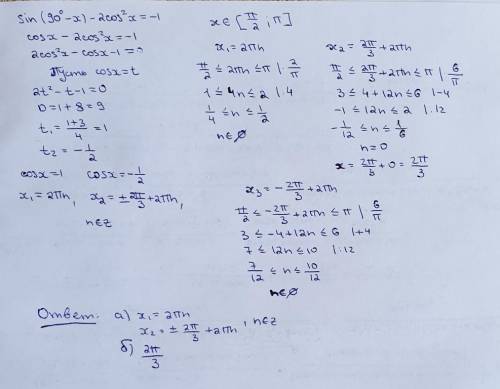 sin (90°-x) - 2cos²x = -1
cosx - 2cos²x = -1
2cos²x - cosx - 1 = 0
Пусть cosx = t
2t² - t - 1 = 0
D = 1 + 8 = 9
t₁ = (1+3)/4 = 1
t₂ = -1/2
cosx = 1 cosx = -1/2
x₁ = 2πn, x₂ = ± 2π/3 + 2πn,
n∈z
x ∈ [π/2; π]
x₁ = 2πn
π/2 ≤ 2πn ≤ π | 2/π
1 ≤ 4n ≤ 2 | :4
1/4 ≤ n ≤ 1/2
n∈∅
x₂ = 2π/3 + 2πn
π/2 ≤ 2π/3 + 2πn ≤ π | 6/π
3 ≤ 4 + 12n ≤ 6 |-4
-1 ≤ 12n ≤ 2 | :12
-1/12 ≤ n ≤ 1/6
n = 0
x = 2π/3 + 0 = 2π/3
x₃ = -2π/3 + 2πn
π/2 ≤ -2π/3 + 2πn ≤ π | 6/π
3 ≤ -4 + 12n ≤ 6 |+4
7 ≤ 12n ≤ 10 | :12
7/12 ≤ n ≤ 10/12
n∈∅
Ответ: а) x₁ = 2πn
x₂ = ± 2π/3 + 2πn, n∈z
б) 2π/3